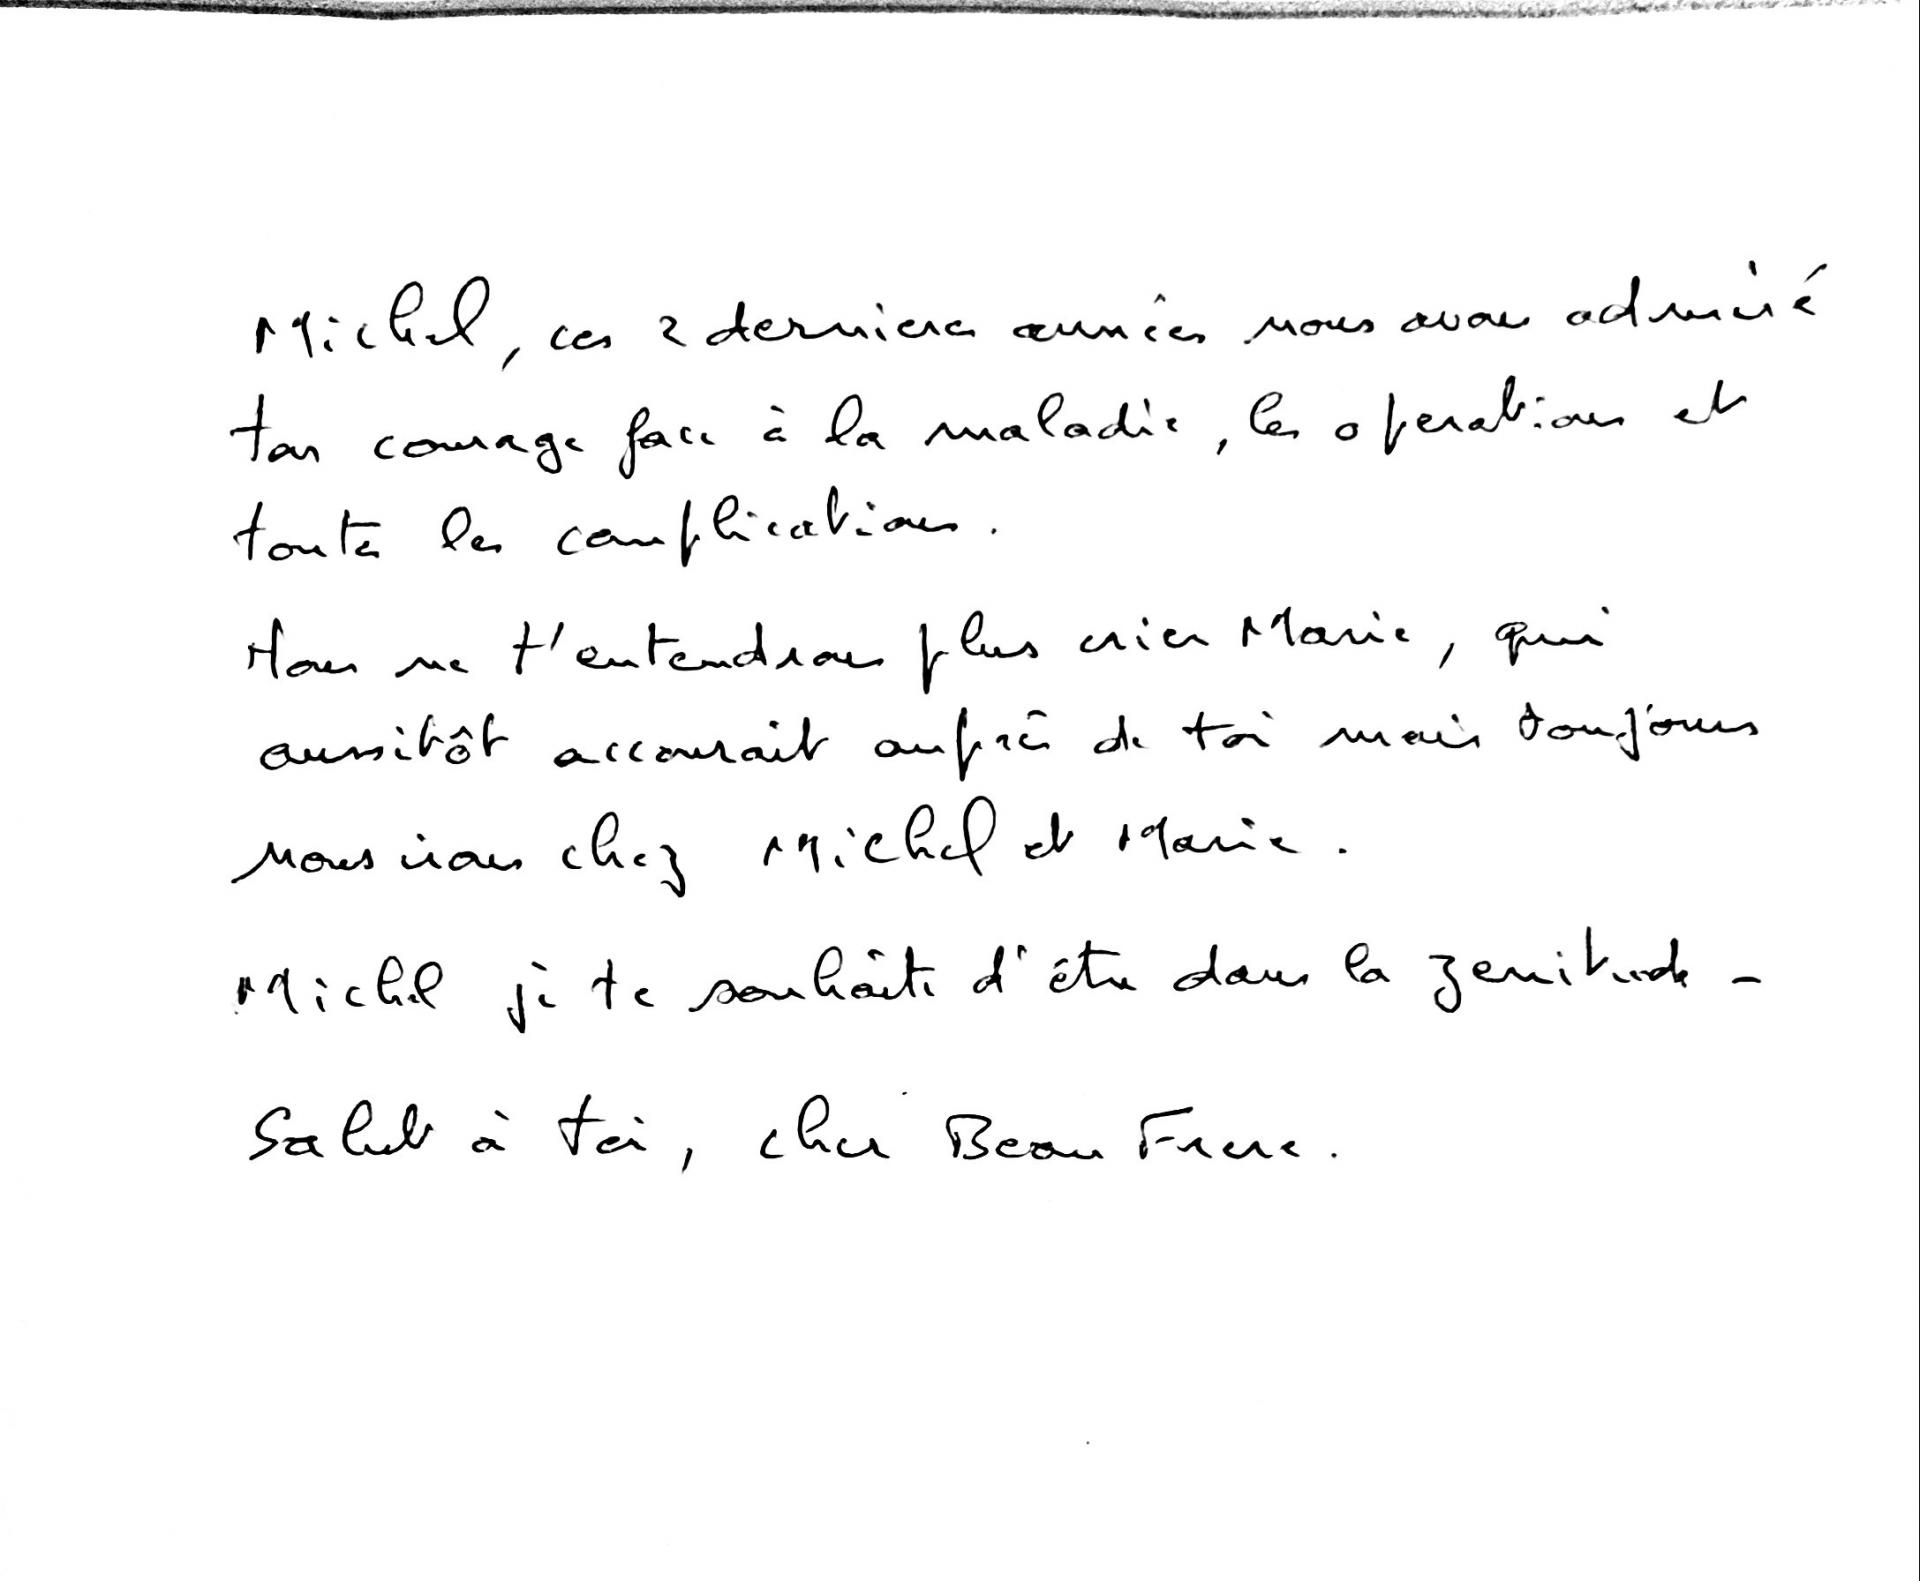 Michel, ces 2 dernieres années nous avons admiré
ton courage face à la maladie, les operations et
toutes les complications.
Nous ne t'entendrons plus crier Marie, qui
aussitôt accourait auprès de toi mais toujours
nous irons chez Michel et Marie.
Michel je te souhaite d'être dans la zenitude -
Salut à toi, cher Beau Frere.